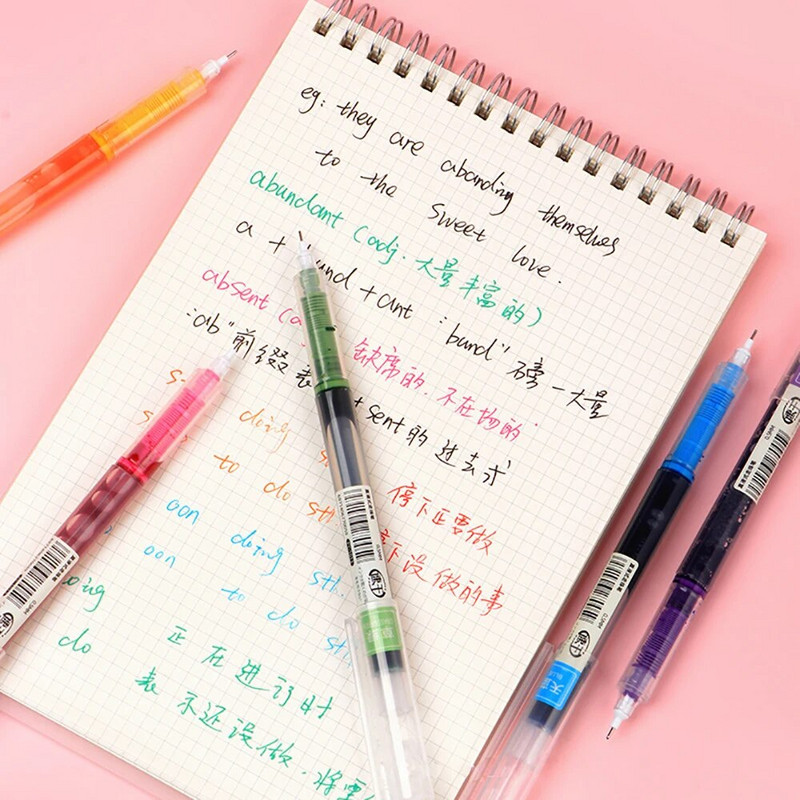 eg: they are abanding themselves
to the sweet love.
abundant (adj. 大量丰富的)
a + und + ant "bund" 磅-大量
absent (a 缺席的.不在场的
"ab"前缀 表 + sent的过去式
s doing s 停下正要做
s to do sth. 下没做的事
oon doing sth.
oon to do sth
oing 正在进行时
do 表示还没做.将要